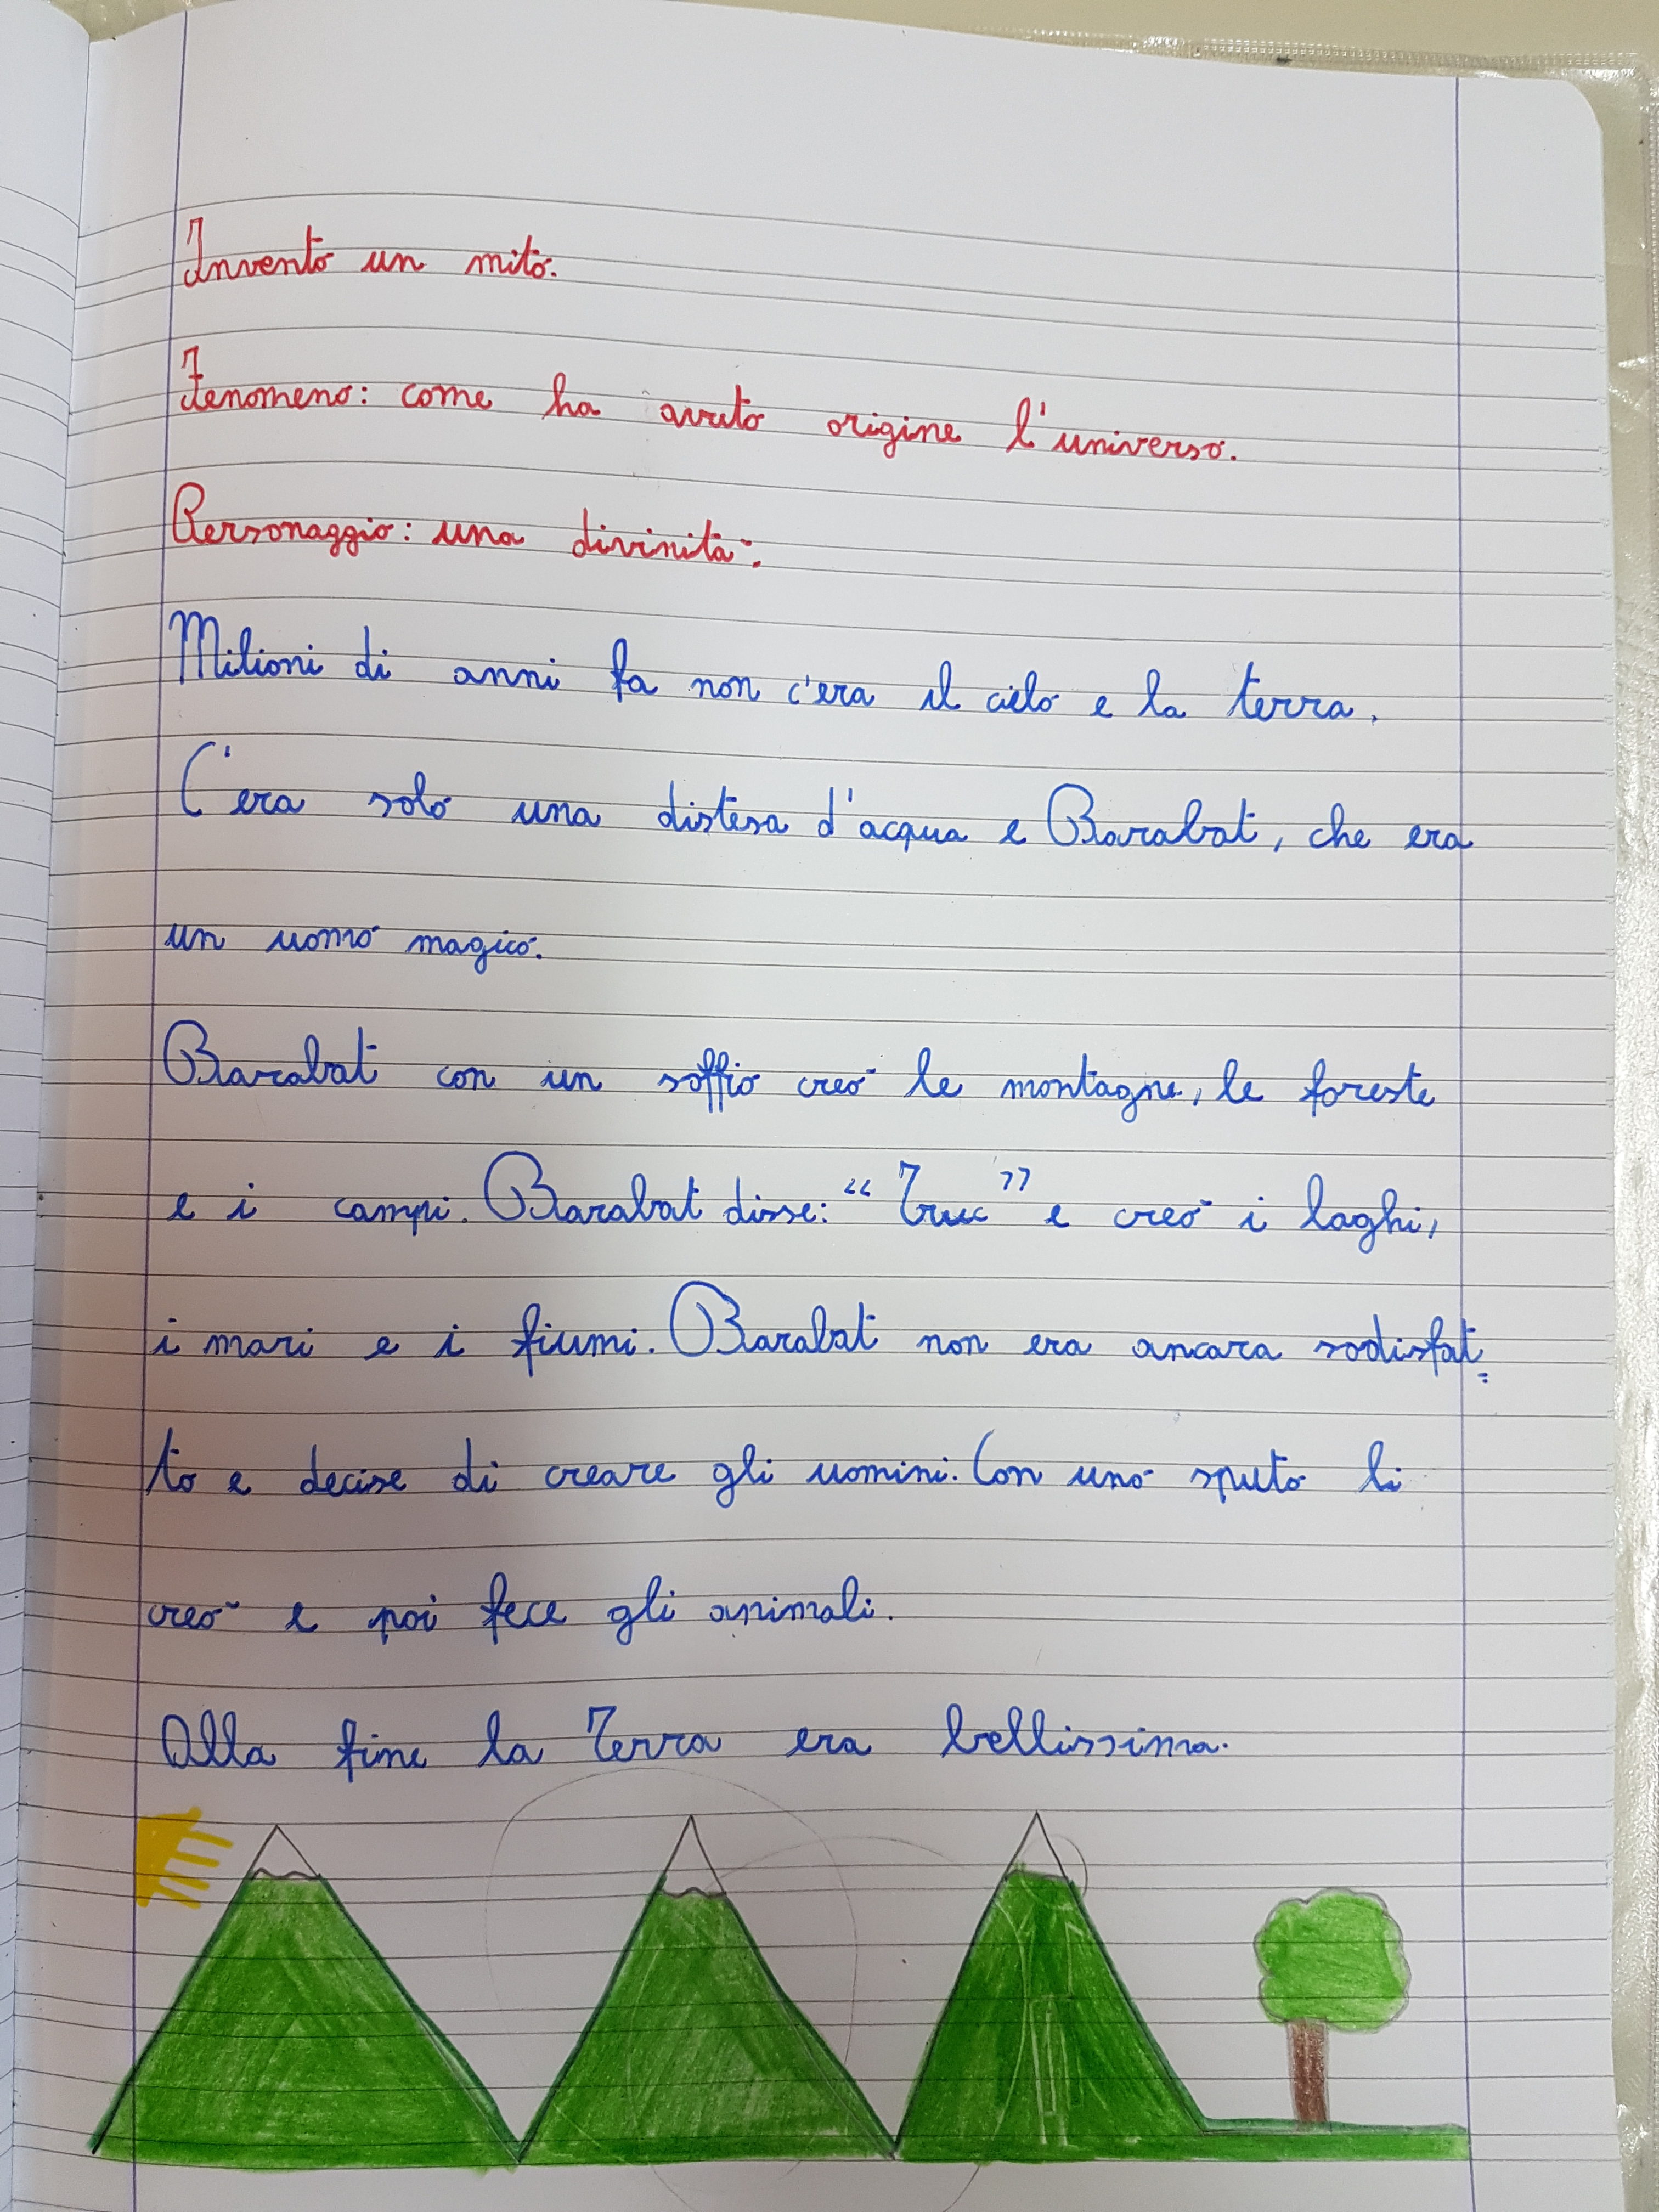 Invento un mito.
Fenomeno: come ha avuto origine l'universo.
Personaggio: una divinità.
Milioni di anni fa non c'era il cielo e la terra.
C'era solo una distesa d'acqua e Barabat, che era
un uomo magico.
Barabat con un soffio creò le montagne, le foreste
e i campi. Barabat disse: “Truc” e creò i laghi,
i mari e i fiumi. Barabat non era ancora sodisfat=
to e decise di creare gli uomini. Con uno sputo li
creò e poi fece gli animali.
Alla fine la Terra era bellissima.